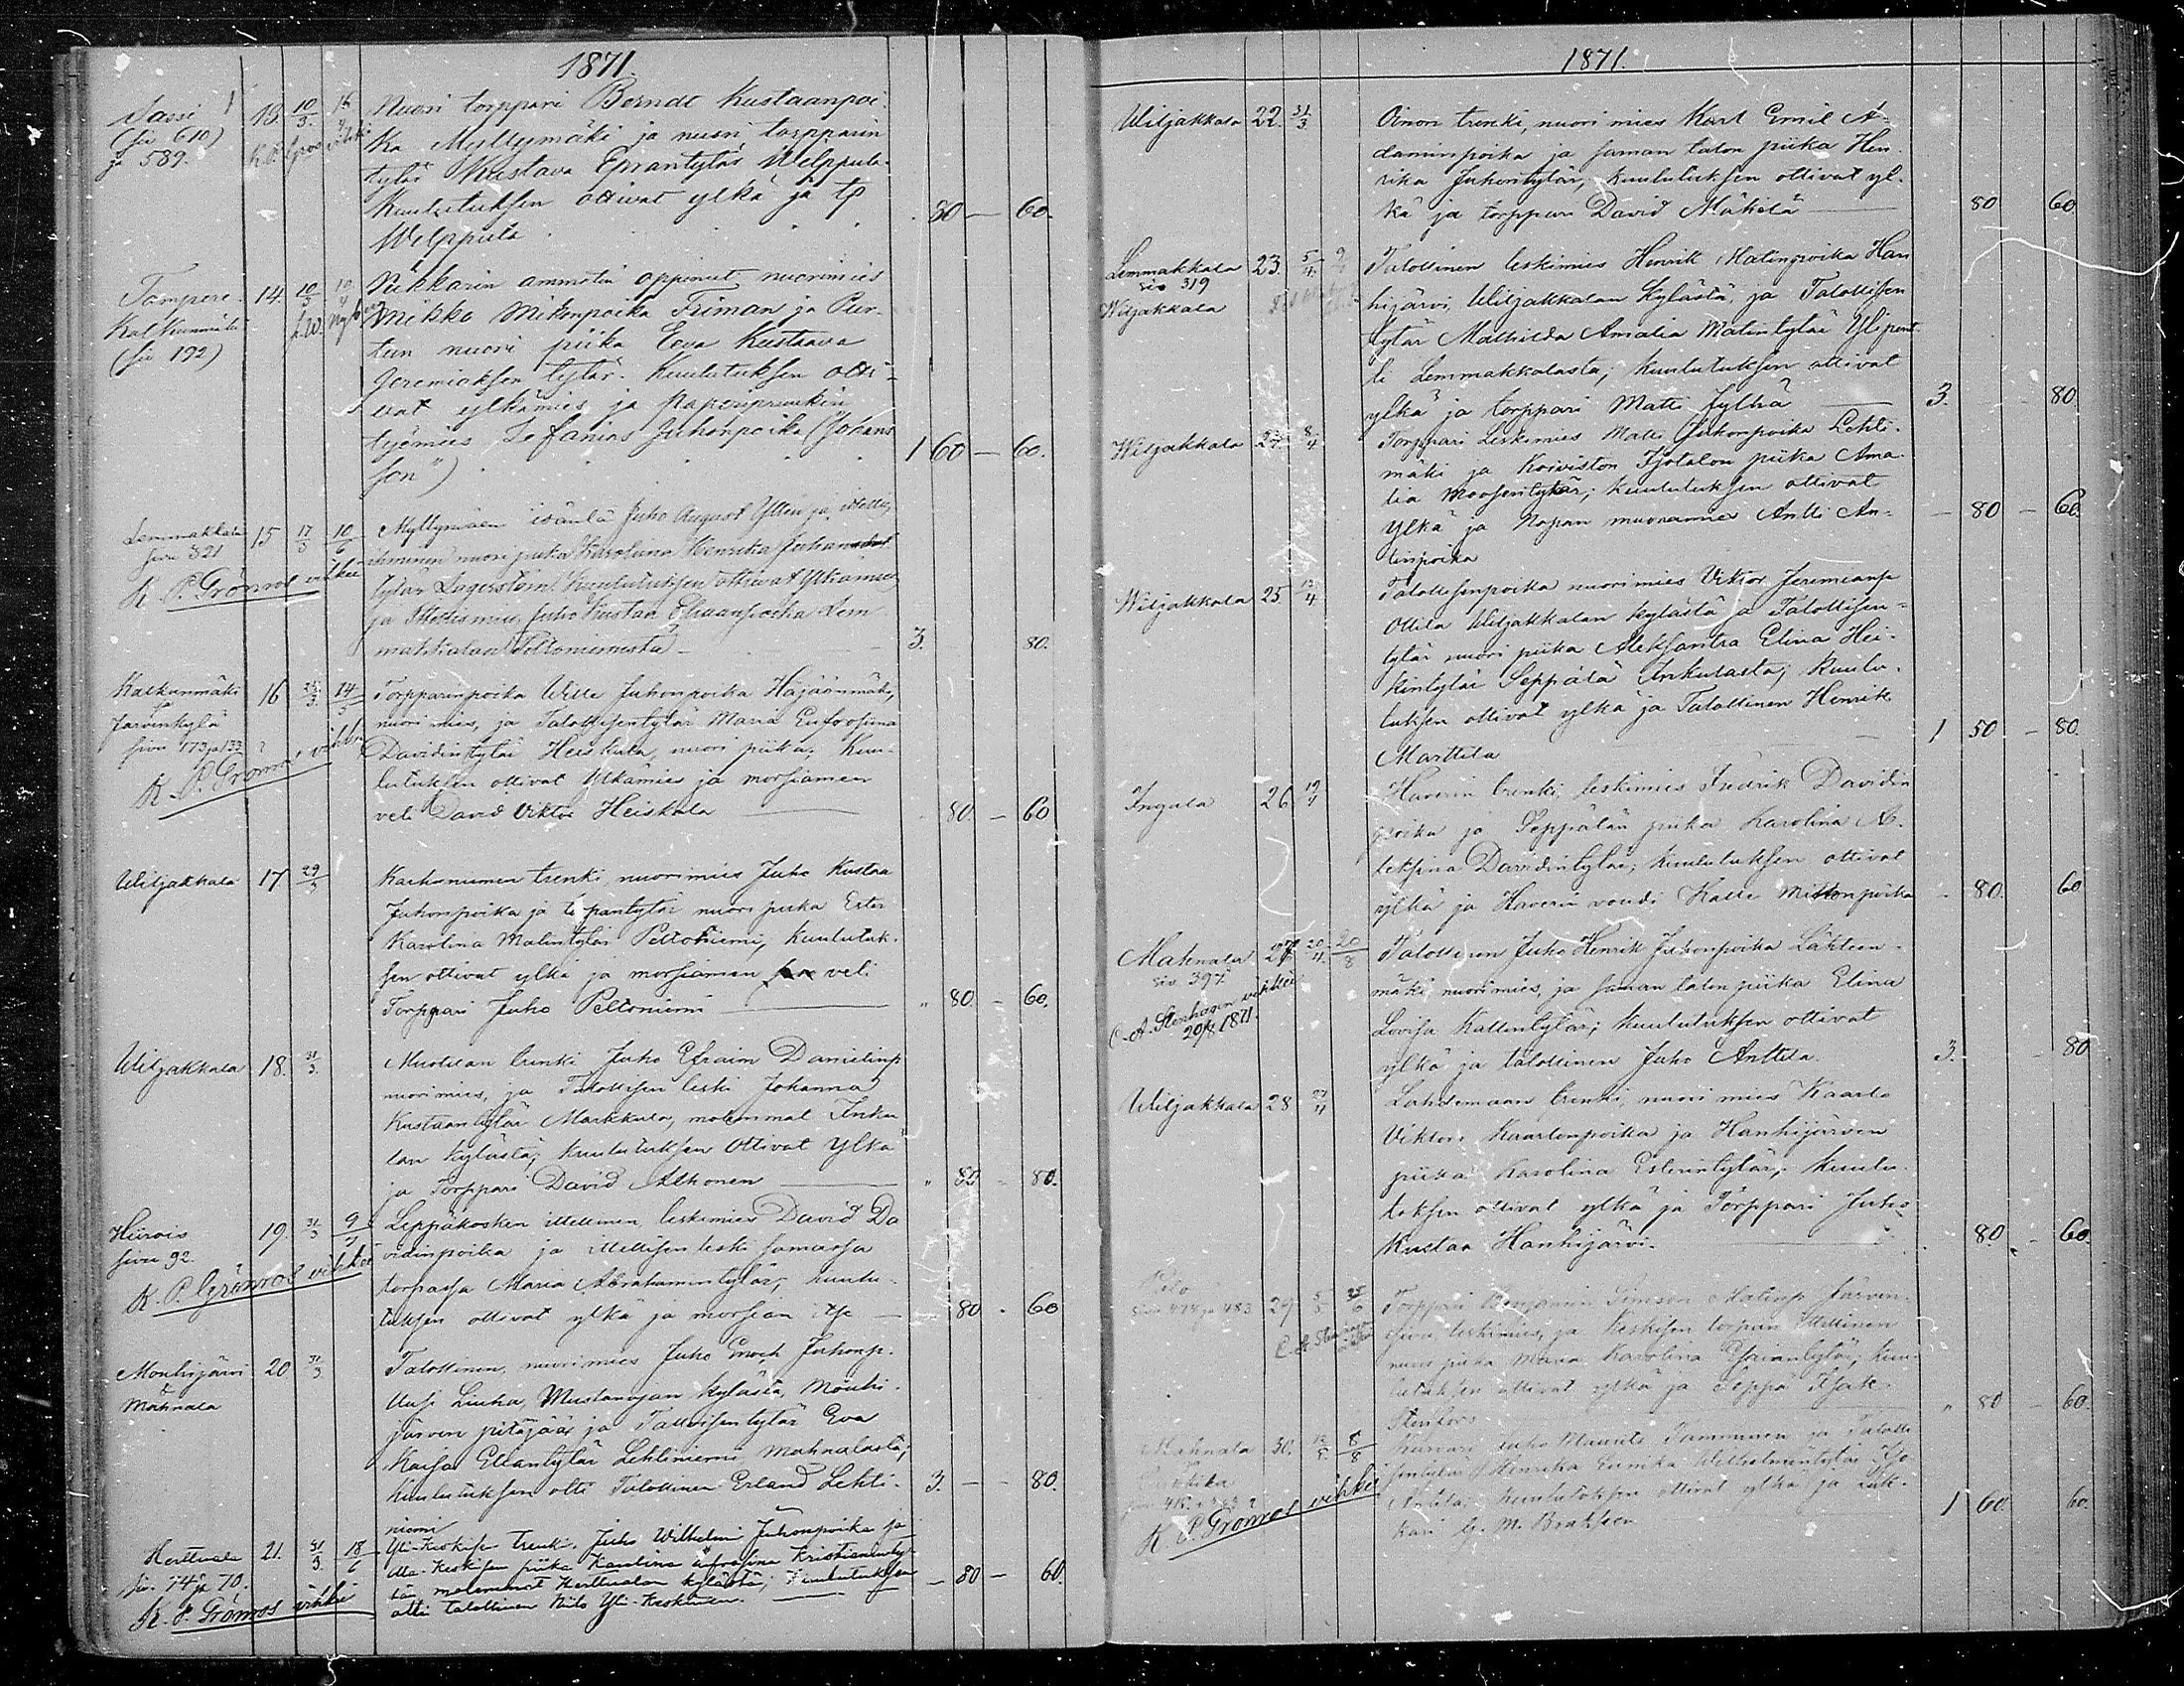 1871.
Sassi 13. 10/3. 16/4 Nuori torppari Berndt Kustaanpoi-
(siv 610) K. P. Grönroos vihki ka Myllymäki ja nuori torpparin
ja 589. tytär Kustava Eprantytär Welppula
Kuulutuksen ottivat ylkä ja tp
Welppula 80 — 60.
Tampere. 14. 10/3 10/4 Nikkarin ammatin oppinut nuorimies
Kalkunmäki Mikko Mikonpoika Friman ja Pun-
(siv 192) tun nuori piika Eeva Kustaava
Jeremiaksen tytär. Kuulutuksen otti-
vat ylkämies ja paperipruukin
työmies Sefanias Juhonpoika (Johans
son") 1 60 — 60.
Lemmakkala 15 17/3 10/6 Myllymäen isäntä Juho August Yllin ja itselli-
sivu 321 nuori piika Karoliina Henrika Juhan
K. P. Grönroos vihki tytär Lagerström. Kuulutuksen ottivat Ylkämies
ja Ittellismies Juho Kustaa Eliaanpoika Lem
makkalan Peltoniemestä — 3. 80.
Kalkunmäki 16 25/3. 14/5 Torpparinpoika Wille Juhonpoika Hajaanmäki,
Järvenkylä nuori mies, ja Talollisentytär Maria Eufrosiina
sivu 173 ja 133 Davidintytär Heiskala, nuori piika; Kuu-
K. P. Grönroos vihki lutuksen ottivat Ylkämies ja morsiamen
veli David Viktor Heiskala 80. — 60
Wiljakkala 17 29/3 Karhuniemen trenki, nuorimies Juho Kustaa
Juhonpoika ja torpantytär nuori piika Ester
Karolina Matintytär Peltoniemi, Kuulutuk-
sen ottivat ylkä ja morsiamen veli
Torppari Juho Peltoniemi " 80 — 60.
Wiljakkala 18. 31/3. Muotilan trenki Juho Efraim Danielinp
nuori mies, ja Talollisen leski Johanna
Kustaantytär Markkula, molemmat Inku
lan kylästä; Kuulutuksen Ottivat Ylkä
ja Torppari David Alkonen " 80 - 80.
Hiirois 19. 31/3 9/7 Leppäkosken ittellinen, leskimies David Da
sivu 92. vidinpoika ja ittellisen leski samassa
K. P. Grönroos vihki torpassa Maria Abrahamintytär, kuulu-
tuksen ottivat ylkä ja morsian itse — 80 - 60
Mouhijärvi 20 31/3. Talollinen, nuorimies Juho Enoch Juhonp.
& Uusi Liuha, Mustanojan kylästä, Mouhi-
Mahnala järven pitäjää ja Talollisentytär Eva
Kaisa Eliantytär Lehtiniemi Mahnalasta;
Kuulutuksen otti Talollinen Erland Lehti- 3. — — 80.
niemi
Herttuala 21. 31/3. 18/6 Yli-Keskisen trenki, Juho Wilhelmi Juhonpoika ja
siv. 74 ja 70. Ala-Keskisen piika Karolina Eufrosina Kristianinty-
tär, molemmat Herttualan kylästä; Kuulutuksen
K. P. Grönroos vihki otti talollinen Niilo Yli-Keskinen. — 80 — 60.
1871.
Wiljakkala 22. 31/3 Oinon trenki, nuori mies Karl Emil A-
daminpoika ja saman talon piika Hen-
rika Juhontytär, Kuulutuksen ottivat yl-
kä ja torppari David Mäkelä — 80 60
Lemmakkala 23. 5/4. Talollinen leskimies Henrik Matinpoika Han
siv 319 hijärvi, Wiljakkalan kylästä, ja Talollisen
Wiljakkala tytär Mathilda Amalia Matintytär Ylipent
ti Lemmakkalasta; Kuulutuksen ottivat
ylkä ja torppari Matti Jylhä — 3. 80
Wiljakkala 24. 8/4 Torppari Leskimies Matti Juhonpoika Lehti-
mäki ja Koiviston Isotalon piika Ama-
lia Moosentytär; kuulutuksen ottivat
Ylkä ja Nopan muorimies Antti An- — 80 — 60.
tinpoika
Wiljakkala 25. 13/4 Talollisenpoika nuorimies Viktor Jeremianp
Ottila Wiljakkalan kylästä ja Talollisen-
tytär nuori piika Aleksantra Elina Hei-
kintytär Seppälä Inkulasta; kuulu-
tuksen ottivat ylkä ja Talollinen Henrik
Marttila — 1 50 — 80.
Ingula 26 19/4 Haverin trenki, leskimies Fredrik Davidin
poika ja Seppälän piika Karolina A-
leksina Davidintytär; kuulutuksen ottivat
ylkä ja Haverin vouti Kalle Mikonpoika - 80. 60
Mahnala 27 20/4. 20/8 Talollinen Juho Henrik Juhonpoika Lähteen-
siv 397. mäki, nuori mies, ja saman talon piika Elina
C. A. Stenhagen vihki Lovisa Kallentytär; kuulutuksen ottivat
20/8 1871. ylkä ja talollinen Juho Anttila. 3. 80
Wiljakkala 28 27/4 Lahdenmaan trenki, nuori mies Kaarlo
Viktori Kaarlonpoika ja Hanhijärven
piika Karolina Esterintytär; kuulu-
tuksen ottivat ylkä ja Torppari Juho
Kustaa Hanhijärvi. — 80. — 60.
siv 474 ja 483 29 5/5 25/6 Torppari Benjamin Simson Matinp Järven-
sivu, leskimies, ja Keskisen torpan Ittellinen
nuori piika Maria Karolina Efraimtytär; kuu-
lutuksen ottivat ylkä ja Seppä Isak
Stenfors " 80 — 60.
Mahnala 30. 12/5 8/8 Juho Maurits Tamminen ja Talolli
sentytär Henrika Eunika Wilhelmintytär Iso
Anttila; Kuulutuksen ottivat ylkä ja Luk-
K. P. Grönroos vihki. kari G. M. Brahsen 1 60. 60.